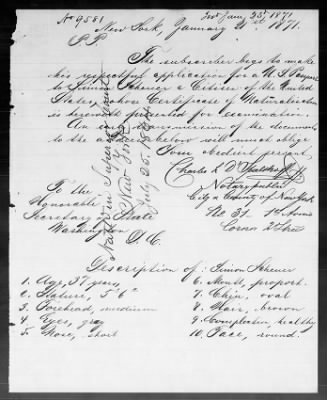 No 9581
Iss Jany 23, 1871
New York, January 21st 1871.
The subscriber begs to make
his respectful application for a U.S. Passport
to Simon Scheuer a Citizen of the United
States, whose Certificate of Naturalization
is herewith presented for examination.
An early transmission of the documents
to the address below will much oblige
Your obedient servant
Charles L D
Notary public
City & County of New York
No 31. 1st Avenue
Corner 2d Street
To the
Honorable
Secretary of State
Washington
D. C.
Nat. in Superior Court
New York
July 25. 18
Description of: Simon Scheuer
1. Age, 37 years,
2. Stature, 5' 6"
3. Forehead, medium
4. Eyes, gray
5. Nose, short
6. Mouth, proport.
7. Chin, oval
8. Hair, brown
9. Complexion, healthy
10. Face, round.